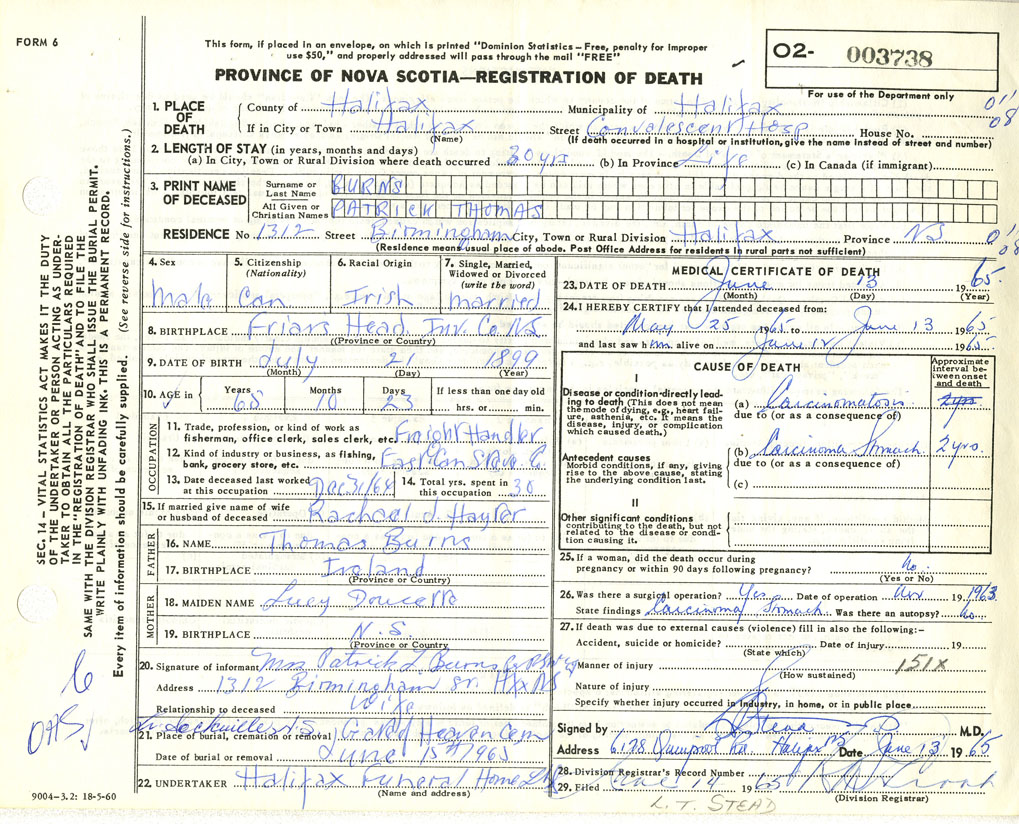 FORM 6
This form, if placed in an envelope, on which is printed "Dominion Statistics – Free, penalty for improper
use $50," and properly addressed will pass through the mail "FREE"
PROVINCE OF NOVA SCOTIA—REGISTRATION OF DEATH
O2- 003738
For use of the Department only
SEC. 14 – VITAL STATISTICS ACT MAKES IT THE DUTY
OF THE UNDERTAKER OR PERSON ACTING AS UNDER-
TAKER TO OBTAIN ALL THE PARTICULARS REQUIRED
IN THE "REGISTRATION OF DEATH" AND TO FILE THE
SAME WITH THE DIVISION REGISTRAR WHO SHALL ISSUE THE BURIAL PERMIT.
WRITE PLAINLY WITH UNFADING INK. THIS IS A PERMANENT RECORD.
Every item of information should be carefully supplied. (See reverse side for instructions.)
1. PLACE OF DEATH
County of Halifax Municipality of Halifax
If in City or Town Halifax Street Convalescent Hosp House No.
(Name) (If death occurred in a hospital or institution, give the name instead of street and number)
2. LENGTH OF STAY (in years, months and days)
(a) In City, Town or Rural Division where death occurred 30 yrs (b) In Province Life (c) In Canada (if immigrant)
3. PRINT NAME OF DECEASED
Surname or Last Name BURNS
All Given or Christian Names PATRICK THOMAS
RESIDENCE No 1312 Street Birmingham City, Town or Rural Division Halifax Province NS
(Residence means usual place of abode. Post Office Address for residents in rural parts not sufficient)
4. Sex Male
5. Citizenship (Nationality) Can
6. Racial Origin Irish
7. Single, Married, Widowed or Divorced (write the word) Married
8. BIRTHPLACE Friars Head Inv. Co NS
(Province or Country)
9. DATE OF BIRTH July 21 1899
(Month) (Day) (Year)
10. AGE in Years 65 Months 10 Days 23 If less than one day old hrs. or min.
OCCUPATION
11. Trade, profession, or kind of work as
fisherman, office clerk, sales clerk, etc. Freight Handler
12. Kind of industry or business, as fishing,
bank, grocery store, etc. East Can Steve. Co
13. Date deceased last worked at this occupation Dec 31/64 14. Total yrs. spent in this occupation 30
15. If married give name of wife
or husband of deceased Rachael J Hayter
FATHER
16. NAME Thomas Burns
17. BIRTHPLACE Ireland
(Province or Country)
MOTHER
18. MAIDEN NAME Lucy Doucette
19. BIRTHPLACE N.S.
(Province or Country)
20. Signature of informant Mrs Patrick T Burns
Address 1312 Birmingham St. Hfx NS
Relationship to deceased Wife
Lr. Sackville N.S.
21. Place of burial, cremation or removal Gate of Heaven Cem
Date of burial or removal June 15th 1965
22. UNDERTAKER Halifax Funeral Home Ltd
(Name and address)
9004-3.2: 18-5-60
MEDICAL CERTIFICATE OF DEATH
23. DATE OF DEATH June 13 1965
(Month) (Day) (Year)
24. I HEREBY CERTIFY that I attended deceased from:
May 25 1965 to June 13 1965
and last saw him alive on June 12 1965
CAUSE OF DEATH
Approximate interval between onset and death
I
Disease or condition directly leading to death (This does not mean the mode of dying, e.g., heart failure, asthenia, etc. It means the disease, injury, or complication which caused death.)
(a) Carcinomatosis 2 yrs
due to (or as a consequence of)
Antecedent causes
Morbid conditions, if any, giving rise to the above cause, stating the underlying condition last.
(b) Carcinoma Stomach 2 yrs.
due to (or as a consequence of)
(c)
II
Other significant conditions
contributing to the death, but not related to the disease or condition causing it.
25. If a woman, did the death occur during
pregnancy or within 90 days following pregnancy? No
(Yes or No)
26. Was there a surgical operation? Yes Date of operation Nov. 1963
State findings Carcinoma Stomach Was there an autopsy? No
27. If death was due to external causes (violence) fill in also the following:–
Accident, suicide or homicide? Date of injury 19
(State which)
Manner of injury 151X
(How sustained)
Nature of injury
Specify whether injury occurred in industry, in home, or in public place
Signed by L T Stead M.D.
Address 6178 Quinpool Rd Halifax Date June 13 1965
28. Division Registrar's Record Number
29. Filed June 14 1965
(Division Registrar)
L. T. STEAD